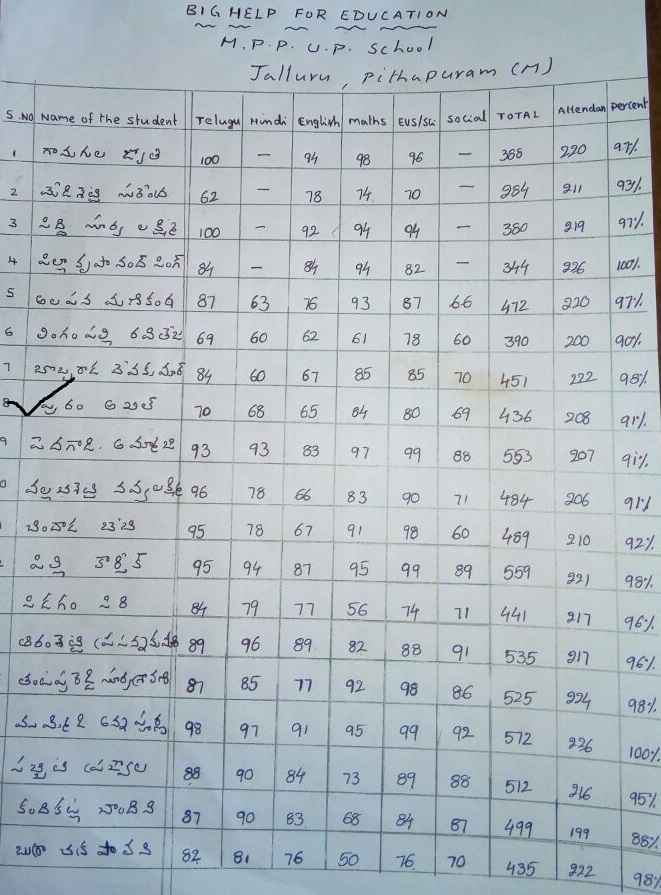 BIG HELP FOR EDUCATION
M.P.P. U.P. School
Jalluru, Pithapuram (M)
S.NO Name of the student Telugu Hindi English maths EVS/Sci Social TOTAL Attendan percent
1 గామగల జ్యోతి 100 — 94 98 96 — 388 220 97%
2 62 — 78 74 70 — 284 211 93%
3 సిద్ది సూర్య లక్ష్మి 100 — 92 94 94 — 380 219 97%
4 పిల్లా కృపానంద్ సింగ్ 84 — 84 94 82 — 344 226 100%
5 అలపన మణికంఠ 87 63 76 93 87 66 472 220 97%
6 లింగంపల్లి రవితేజ 69 60 62 61 78 60 390 200 90%
7 దేవకుమార్ 84 60 67 85 85 70 451 222 98%
8 పురం అఖిల్ 70 68 65 84 80 69 436 208 91%
9 పెదగాడి. 93 93 83 97 99 88 553 207 91%
0 నవ్యలక్ష్మి 96 78 66 83 90 71 484 206 91%
చిందాడ బేబి 95 78 67 91 98 60 489 210 92%
పిల్లి కార్తీక్ 95 94 87 95 99 89 559 221 98%
పిడగం సిరి 84 79 77 56 74 71 441 217 96%
ప్రసన్నకుమారి 89 96 89 82 88 91 535 217 96%
87 85 77 92 98 86 525 224 98%
98 97 91 95 99 92 572 226 100%
88 90 84 73 89 88 512 216 95%
కందికట్ల నాందిని 87 90 83 68 84 87 499 199 88%
పావని 82 81 76 50 76 70 435 222 98%